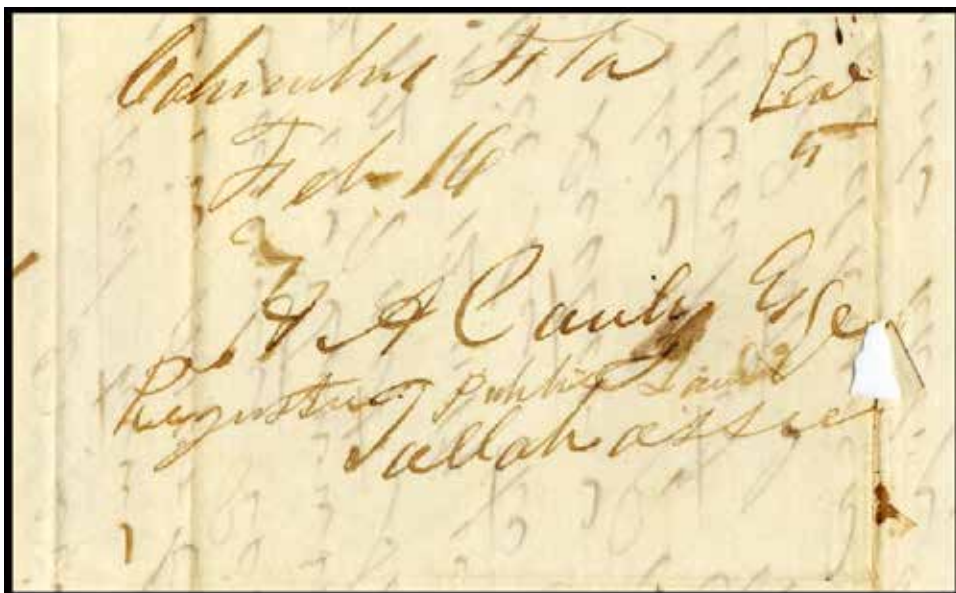 Columbus Fla
Feb 14
Paid
5
A Canty Esqe
Register Public Lands
Tallahassee